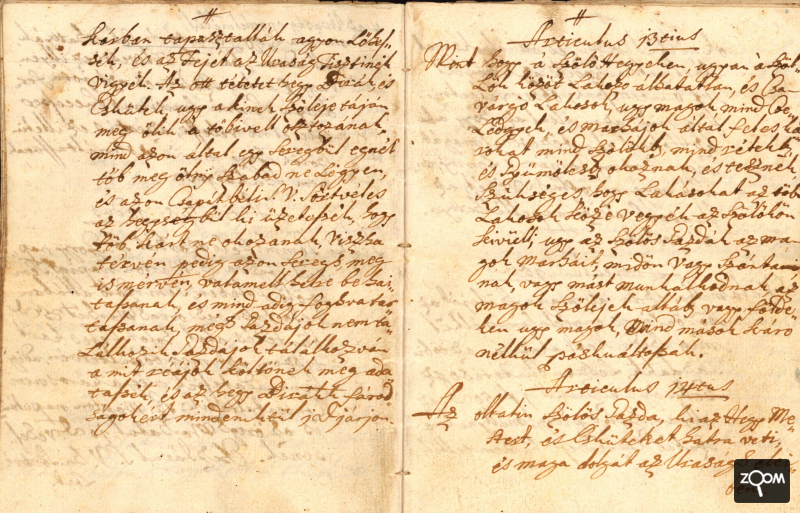 Kárban tapasztalták agyon Lőhes-
sék, és az Fejét az Uraság Tisztinek
vigyék. Az ott tévetet hegy Birák, és
Esküttek, ugy akinek Szöleje taján
meg ölik a többivell osztozának,
mind azon által egy Seregbül egnél
töb meg ölni Szabad ne Légyen,
és azon Csapátbéli S. V. Sövtvéles
az hegységbül ki üzetessék, hogy
töb Kárt ne okozának, Viszsza
tervén pedig azon Sereg meg
is mervén, valamelly helre be haj-
tassanak, és mind adig fogva tar-
tassanak, még Gazdájok nem ta-
lálkozik Gazdájok tálálkozván,
a mit réájok költenek meg ada
tassék, és az hegy Birákk fárod
ságokért mindeniktül jó Díárjon.
Articulus 13tius
Mert hogy a Szölö Hegyeken, ugyan a Szöl-
lök között Lakozo álhatatlan, és Csa-
vargó Lakosok, ugy magok mind Cse-
Lédgyek, és Marhájok által feles ká
rokat mind Szölökb, mind rétekb,
és Gyümölcs okoznak, és tesznek,
Szükséges hogy Lakásokat az töb
Lakosok közé vegyék az Szölökön
kivüll, ugy az Szölös Gazdák az ma-
gok Marháit, midön vagy Szántani
nak, vagy mást munkálkodnak az
magok Szölejek allatt, vagy földe-
ken ugy magok, Mind mások káro
nélkül páskuáltassák.
Articulus 14tus
Az oltatin Szölös Gazda, ki az Hegy Me-
stert, és Esküteket hátra veti,
és maga dolgát az Uraság
ZOOM